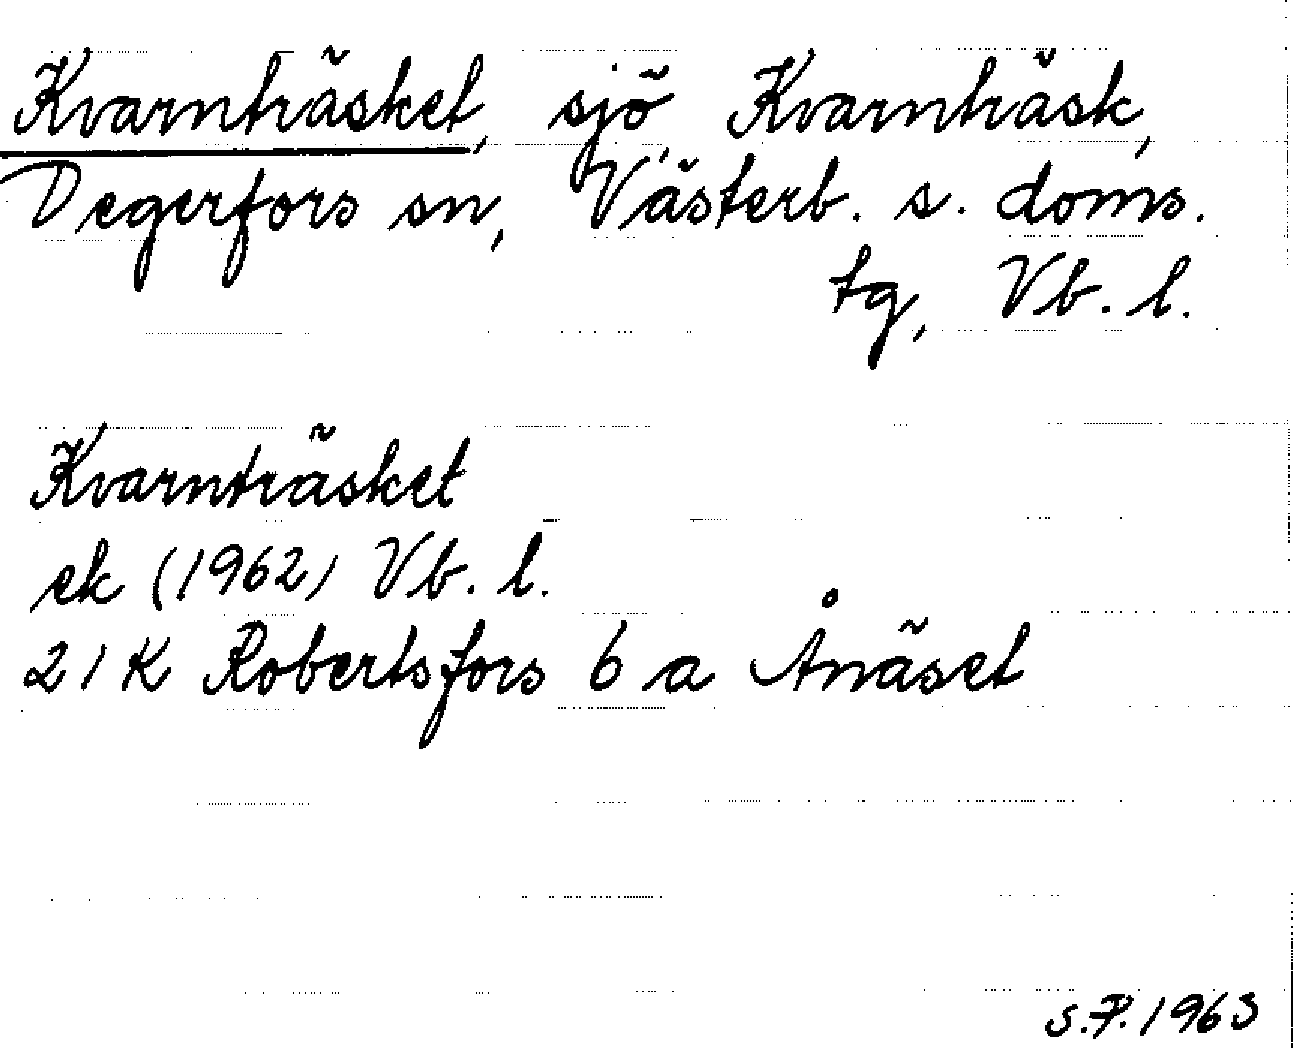 Kvarnträsket, sjö, Kvarnträsk,
Degerfors sn, Västerb. s. doms.
tg, Vb. l.
Kvarnträsket
ek (1962) Vb. l.
21K Robertsfors 6 a Ånäset
S.P. 1963